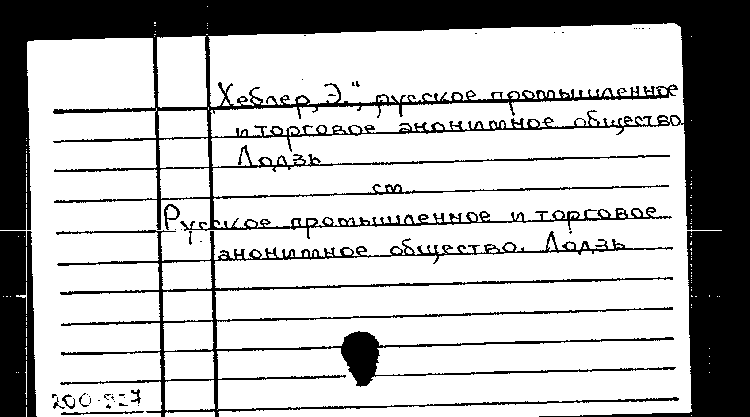 Хеблер, Э.", русское промышленное
и торговое анонимное общество
Лодзь
см
Русское промышленное и торговое
анонимное общество. Лодзь